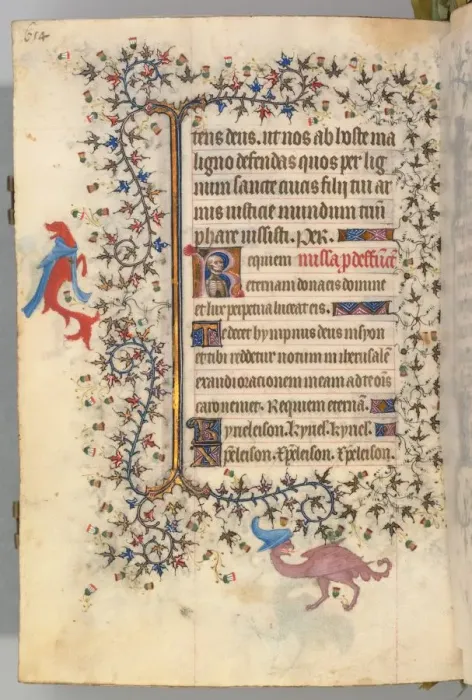 614
tens deus. ut nos ab hoste ma
ligno defendas quos per lig
num sancte crucis filii tui ar
mis iusticie mundum tuū
phare iussisti. Per.
Requiem missa p defūct
eternam dona eis domine
et lux perpetua luceat eis.
Te decet hympnus deus in syon
et tibi reddetur uotum in iherusalē
exaudi orationem meam ad te oīs
caro ueniet. Requiem eternā.
Kyrieleison. kyriel. kyriel.
Xpeleison. xpeleison. xpeleison.